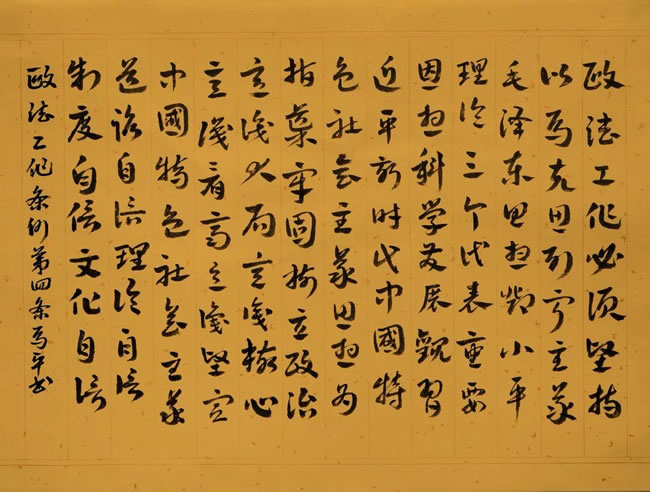 政法工作必须坚持
以马克思列宁主义
毛泽东思想邓小平
理论三个代表重要
思想科学发展觀习
近平新时代中國特
色社会主义思想为
指导牢固树立政治
意识大局意识核心
意识看齐意识坚定
中國特色社会主义
道路自信理论自信
制度自信文化自信
政法工作条例第四条马平书